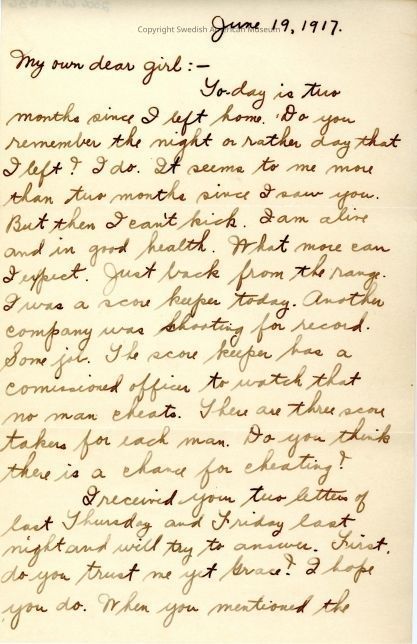 June 19, 1917.
Copyright Swedish American Museum
My own dear girl:-
To-day is two
months since I left home. Do you
remember the night or rather day that
I left? I do. It seems to me more
than two months since I saw you.
But then I can't kick. I am alive
and in good health. What more can
I expect. Just back from the range.
I was a score keeper today. Another
company was shooting for record.
Some job. The score keeper has a
comissioned officer to watch that
no man cheats. There are three score
takers for each man. Do you think
there is a chance for cheating?
I received your two letters of
last Thursday and Friday last
night and will try to answer. First,
do you trust me yet Grace? I hope
you do. When you mentioned the